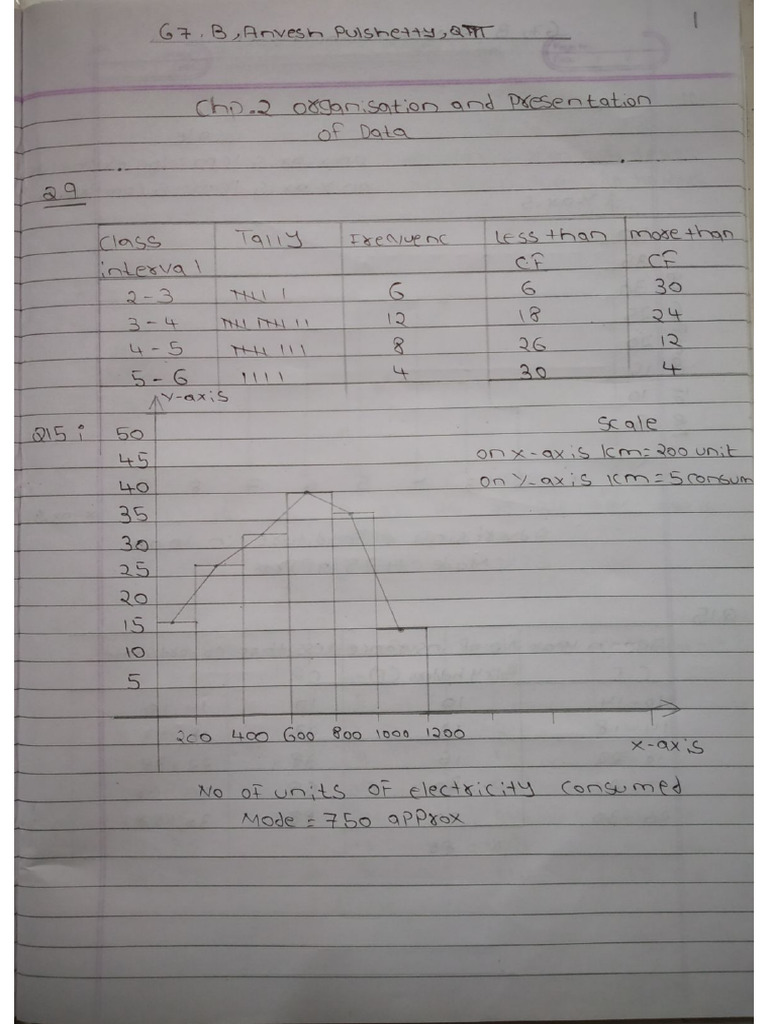 67.B, Anvesh Pulshetty, QTT
1
Chp.2 organisation and Presentation
of Data
29
Class interval Tally Frequenc Less than CF more than CF
2-3 6 6 30
3-4 12 18 24
4-5 8 26 12
5-6 4 30 4
Y-axis
Q15 i
50
Scale
45
on x-axis 1cm=200 unit
40
on Y-axis 1cm=5consum
35
30
25
20
15
10
5
200 400 600 800 1000 1200
x-axis
No of units of electricity consumed
Mode = 750 approx